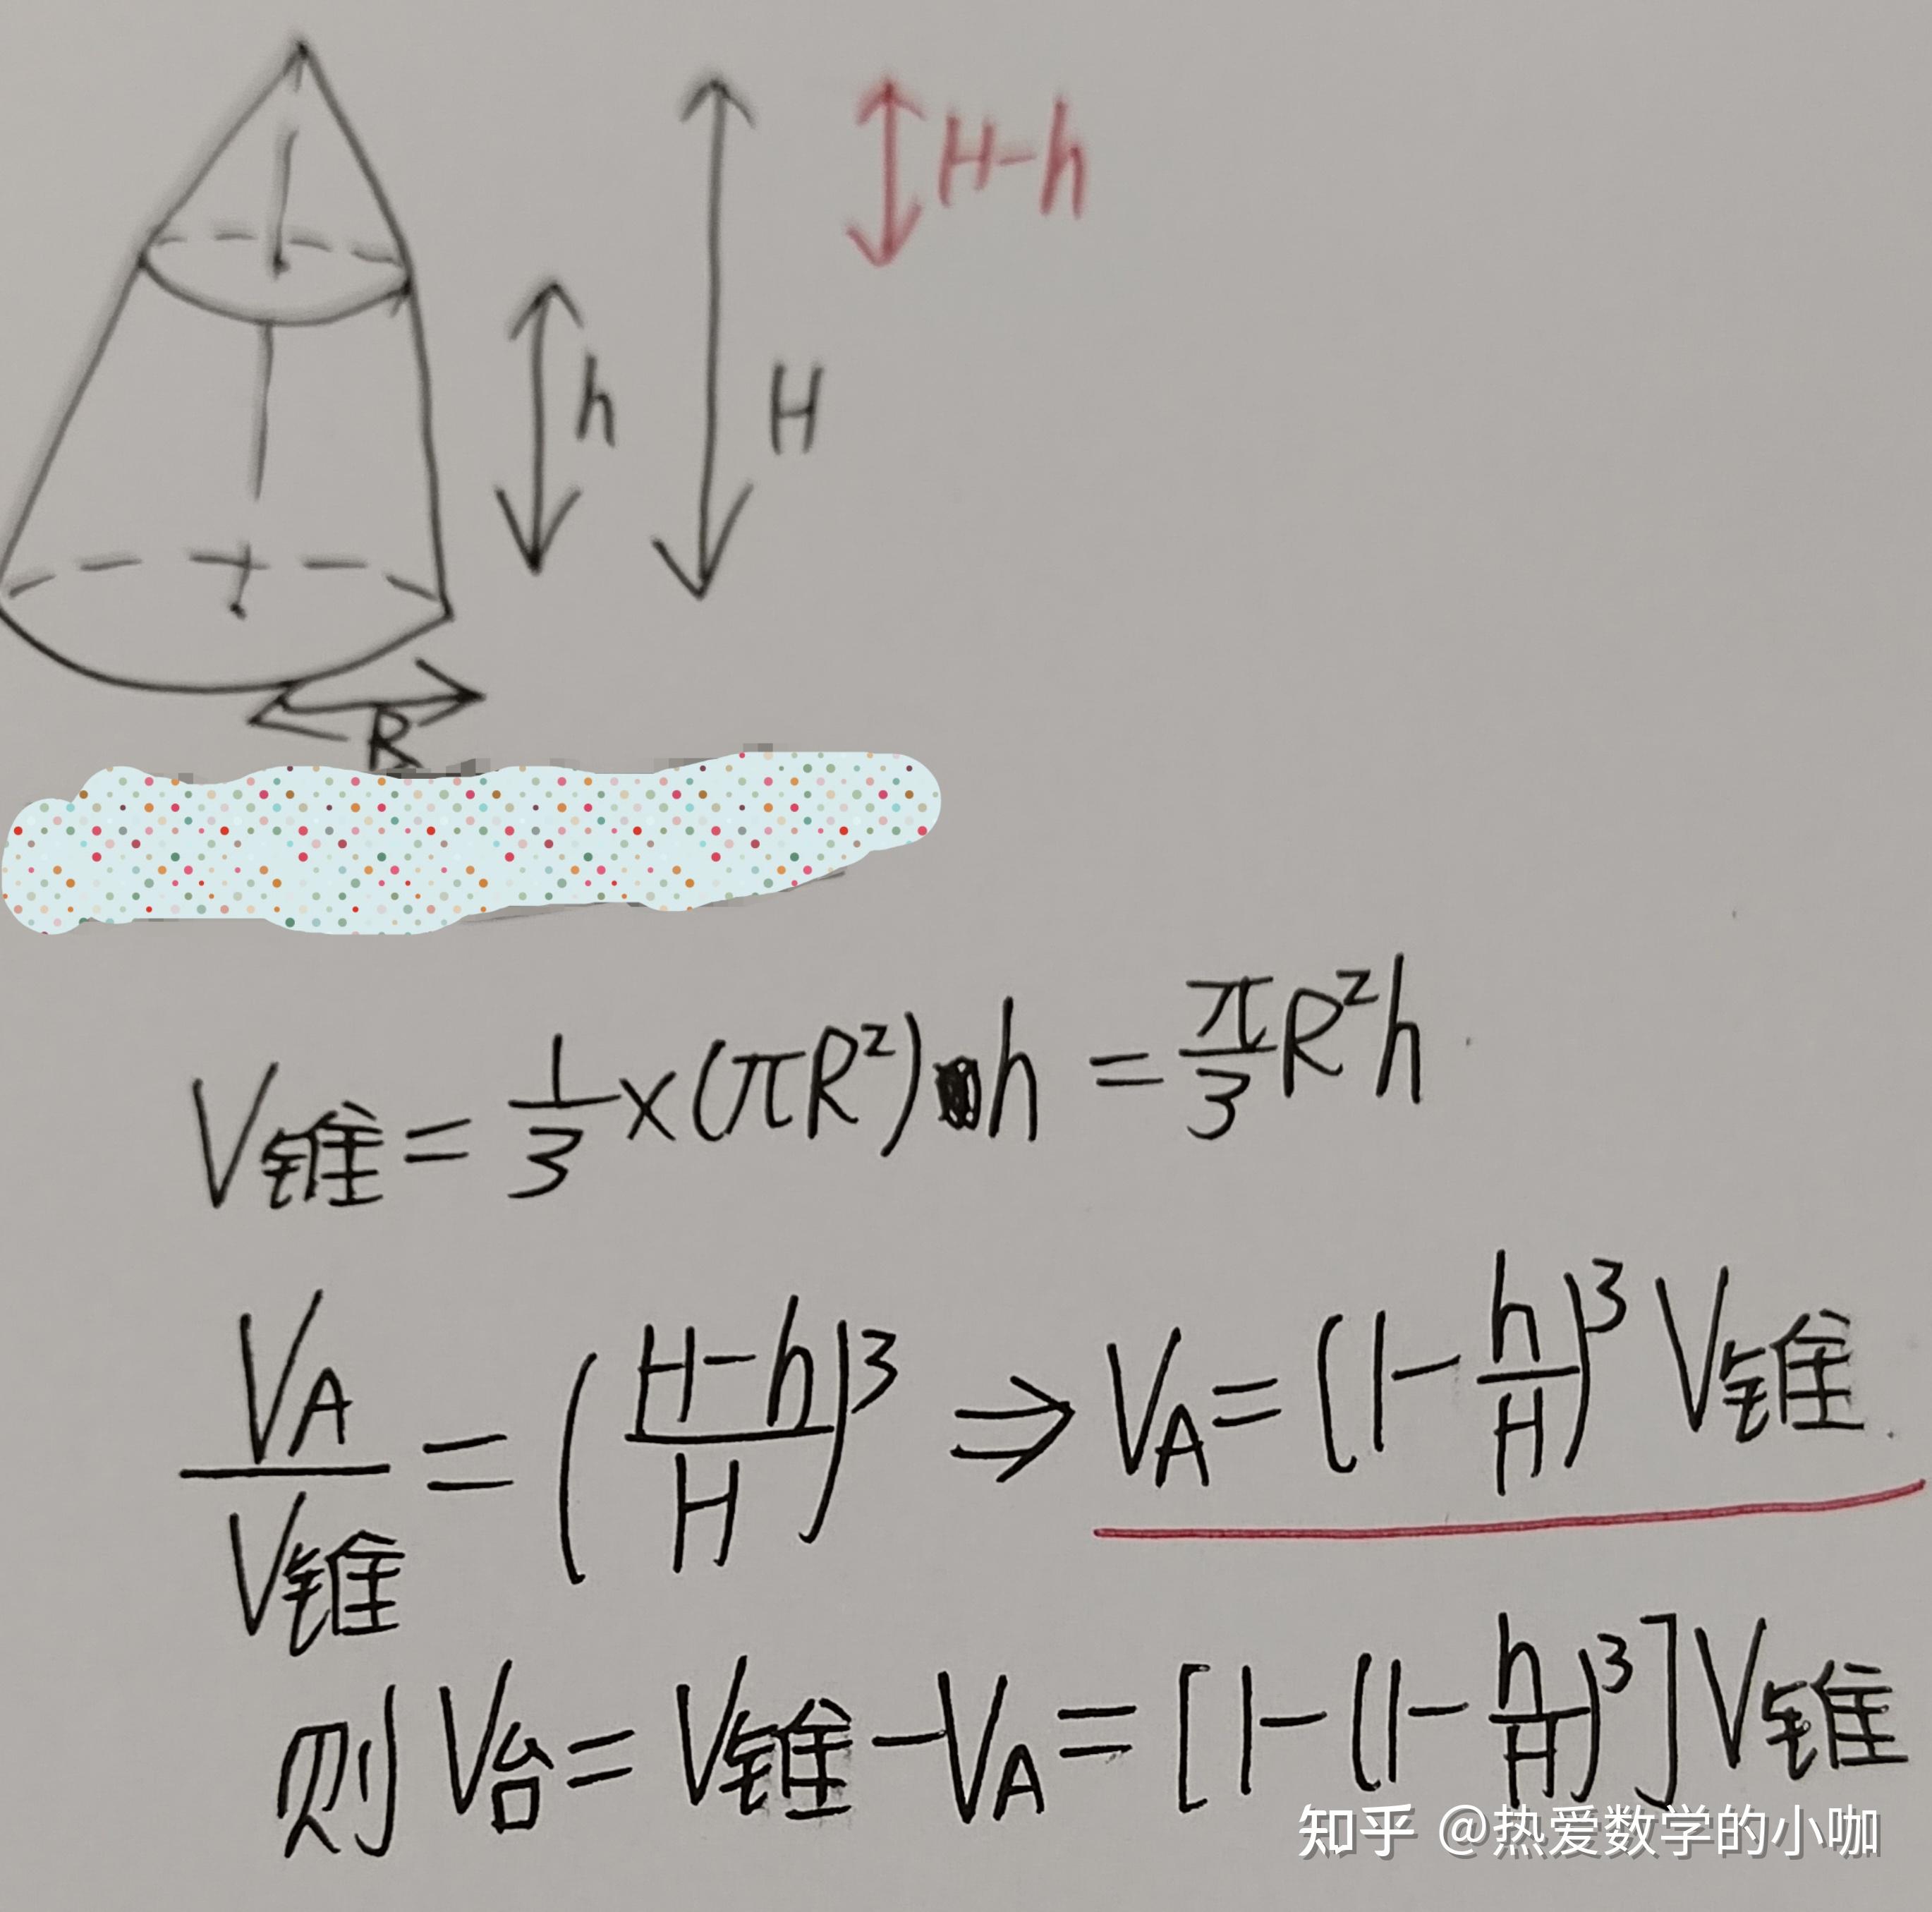 H-h
h
H
R
V锥 = 1/3 × (πR²) h = π/3 R²h
V_A / V锥 = ((H-h)/H)³ ⇒ V_A = (1 - h/H)³ V锥
则 V台 = V锥 - V_A = [1 - (1 - h/H)³] V锥
知乎 @热爱数学的小咖